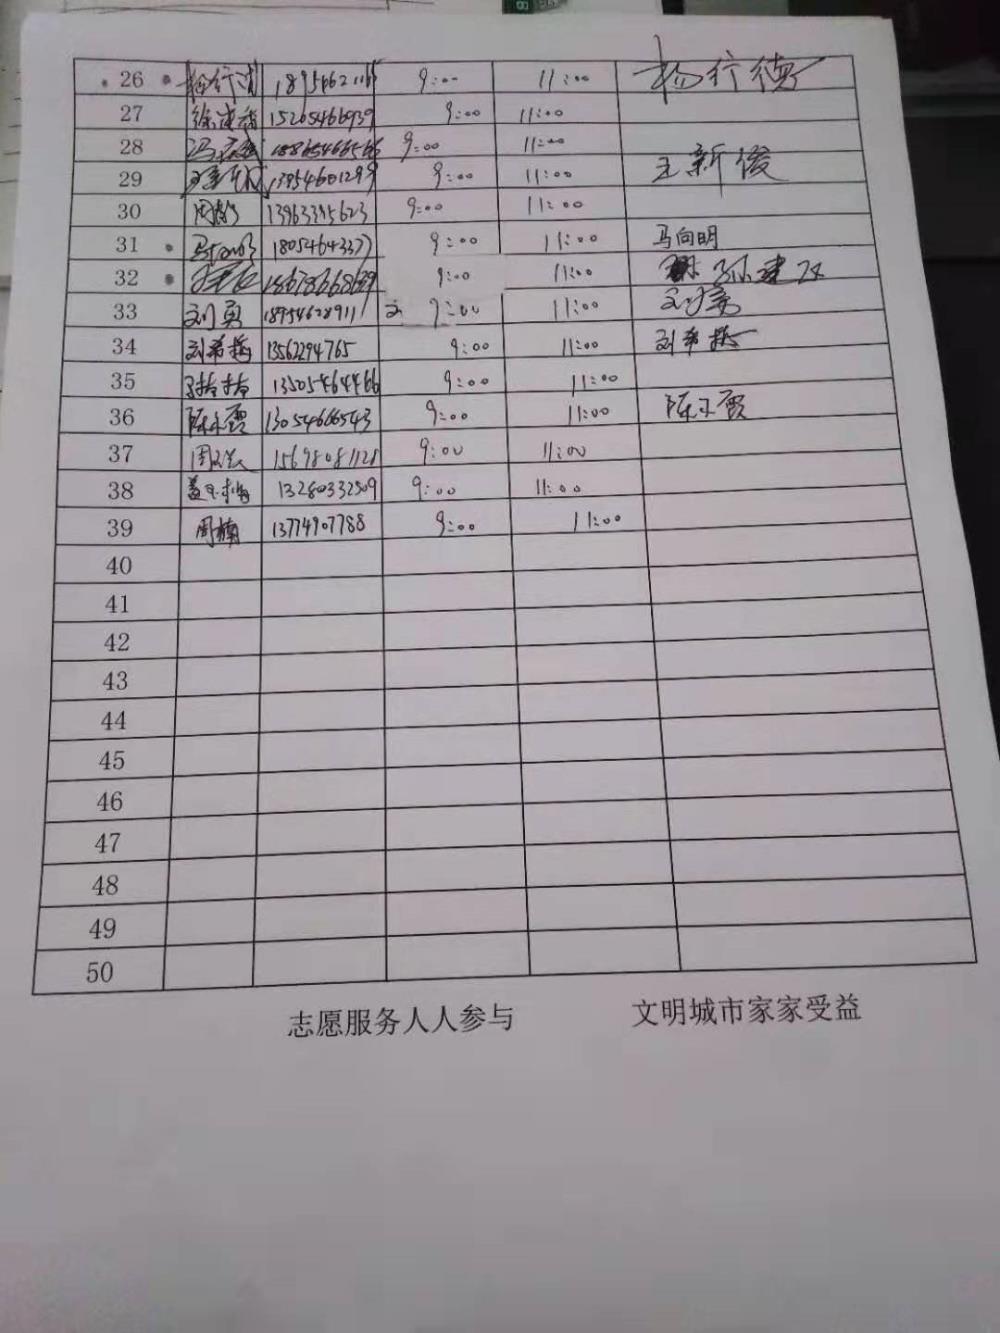 26 杨行德 18954621165 9:00 11:00 杨行德
27 15205466939 9:00 11:00
28 18865466566 9:00 11:00
29 13954601299 9:00 11:00 王新俊
30 13963395623 9:00 11:00
31 马向明 18054643377 9:00 11:00 马向明
32 9:00 11:00
33 刘勇 18954628911 9:00 11:00 刘勇
34 刘希梅 13562294765 9:00 11:00 刘希梅
35 13505464466 9:00 11:00
36 陈永霞 13054666543 9:00 11:00 陈永霞
37 15698081121 9:00 11:00
38 13280332509 9:00 11:00
39 周楠 13774907788 9:00 11:00
40
41
42
43
44
45
46
47
48
49
50
志愿服务人人参与 文明城市家家受益